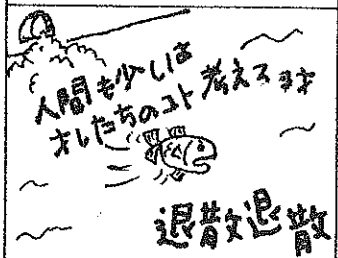 人間も少しは
オレたちのコト考えろよオ
退散退散